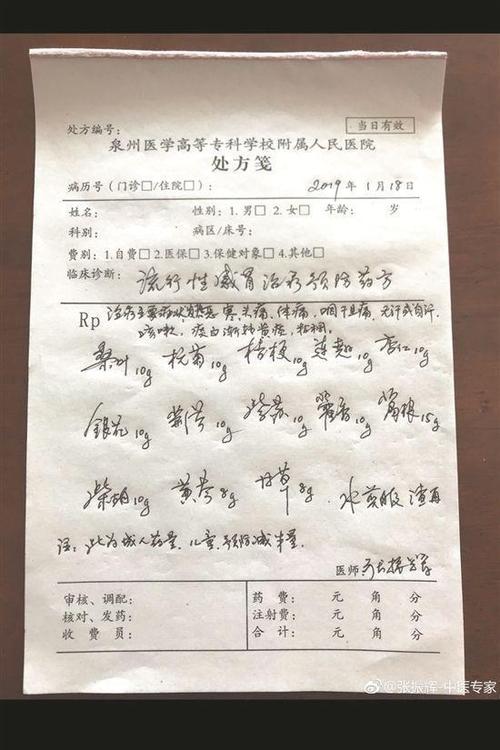 处方编号： 当日有效
泉州医学高等专科学校附属人民医院
处方笺
病历号（门诊□/住院□）： 2019年1月18日
姓名： 性别：1.男□ 2.女□ 年龄： 岁
科别： 病区/床号：
费别：1.自费□ 2.医保□ 3.保健对象□ 4.其他□
临床诊断：流行性感冒治疗预防药方
Rp 治疗主要症状发热恶寒，头痛，体痛，咽干且痛，无汗或自汗，
咳嗽，痰白渐转黄痰，粘稠。
桑叶10g 杭菊10g 桔梗10g 连翘10g 杏仁10g
银花10g 荆芥10g 紫苏10g 藿香10g 葛根15g
柴胡10g 黄芩8g 甘草8g 水煎服 渣再
注：此为成人药量，儿童、预防减半量。
医师
审核、调配： 药费： 元 角 分
核对、发药： 注射费： 元 角 分
收费员： 合计： 元 角 分
@张振辉-中医专家